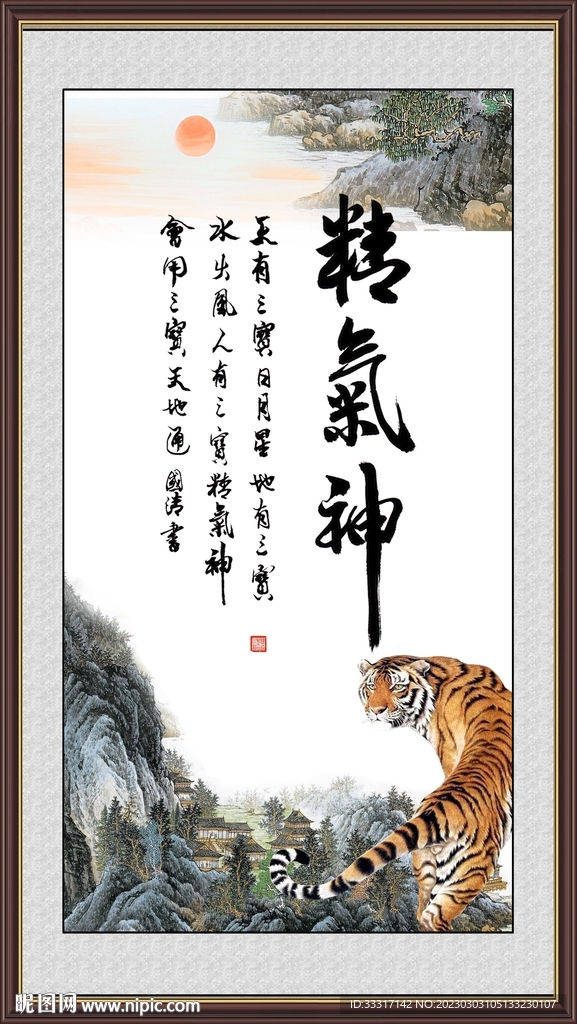 精氣神
天有三寶日月星地有三寶
水火風人有三寶精氣神
會用三寶天地通 國清書
昵图网 www.nipic.com
ID:33317142 NO:20230303105133230107